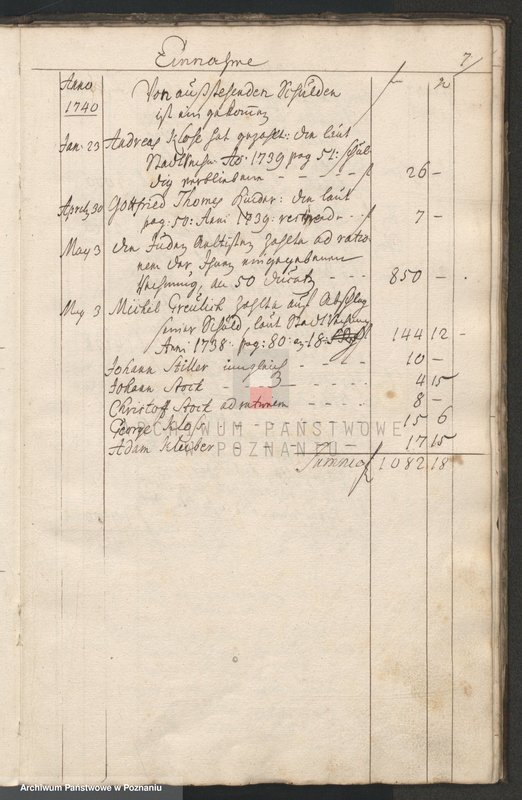 Einnahme 7
Anno 1740
Von außstehenden Schulden
ist ein gekommen
Jan. 23 Andreas Klose hat gezahlt: den laut
Stadt Ao. 1739 pag 51: schul
dig verbliebenen – – – – f 26 –
April 30 Gottfried Thomas den laut
pag: 50: Anni 1739: – – f 7 –
May 3 den Juden zahlen ad ratio
nem der Ihnen eingegebenen
Rechnung, an 50 Ducaten – – – 850 – –
May 3 Michel Greulich zahlte auf Abschlag
seiner Schuld, laut Stadt
Anni 1738 pag: 80: 144 12 –
Johann Stiller – – – 10 –
Johann Stock 4 15
Christoff Stock ad rationem – – – 8 –
George Klose – – – 15 6
Adam – – – 17 15
Summa f 1082 18
3
ARCHIWUM PAŃSTWOWE
W POZNANIU
Archiwum Państwowe w Poznaniu